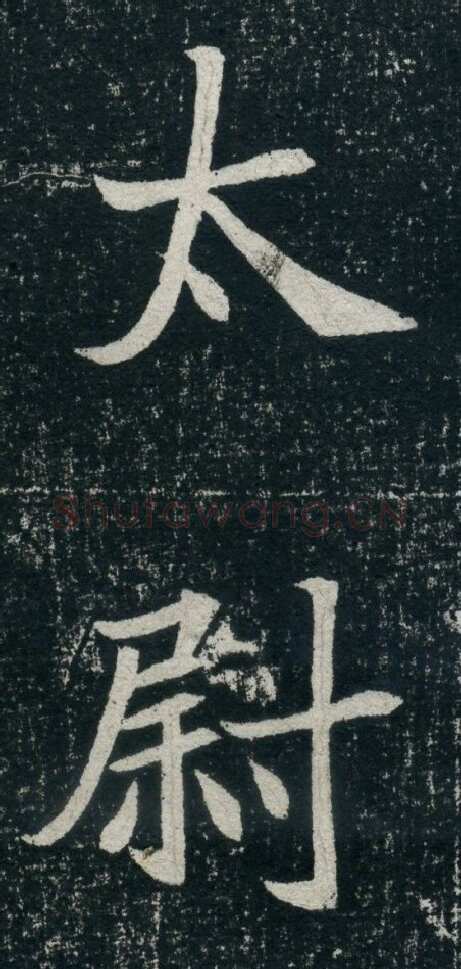 太
尉
Shufawang.CN